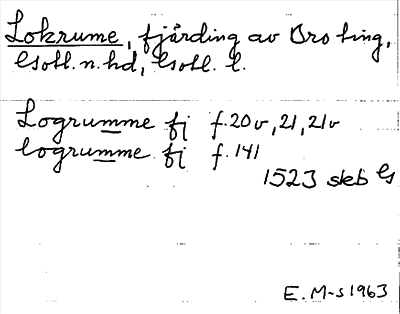 Lokrume, fjärding av Bro ting,
Gotl. n. hd, Gotl. l.
Logrumme fj f. 20v, 21, 21v
logrumme fj f. 141
1523 skb G
E. M-s 1963